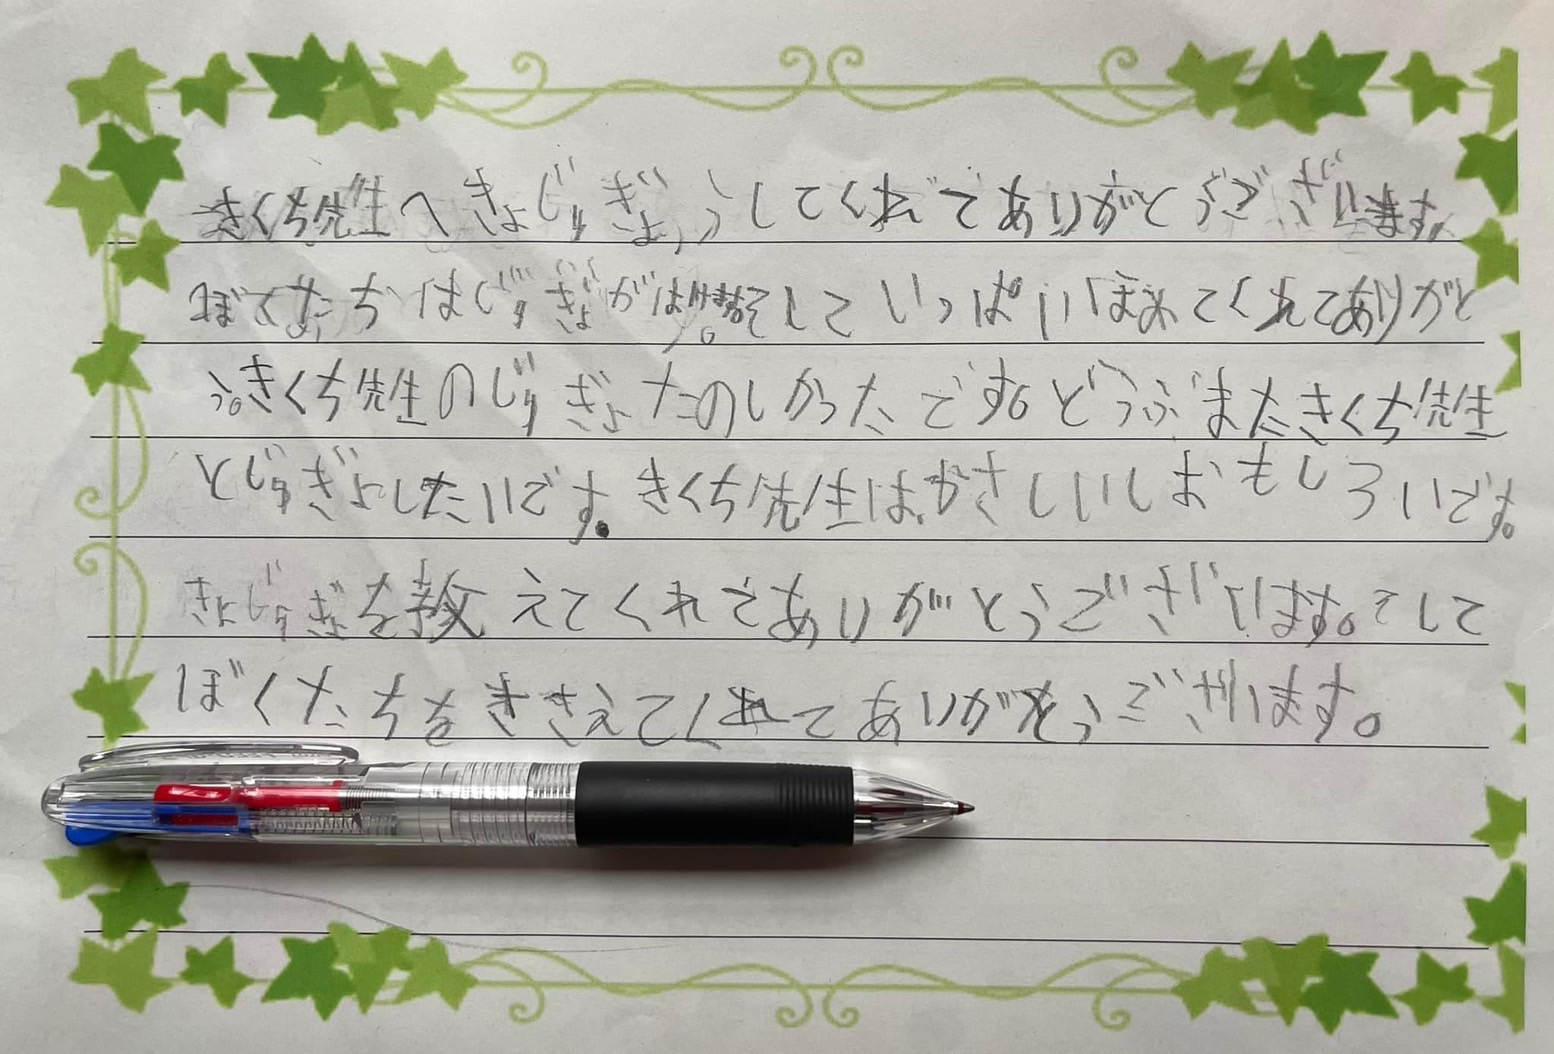 きくち先生へきょじゅぎょうしてくれてありがとうございます。
ぼくたちはじゅぎょがはそしていっぱいほめてくれてありがと
う。きくち先生のじゅぎょたのしかったです。どうぶまたきくち先生
とじゅぎょしたいです。きくち先生は、やさしいしおもしろいです。
きょじゅぎょを教えてくれてありがとうございます。そして
ぼくたちをささえてくれてありがとうございます。